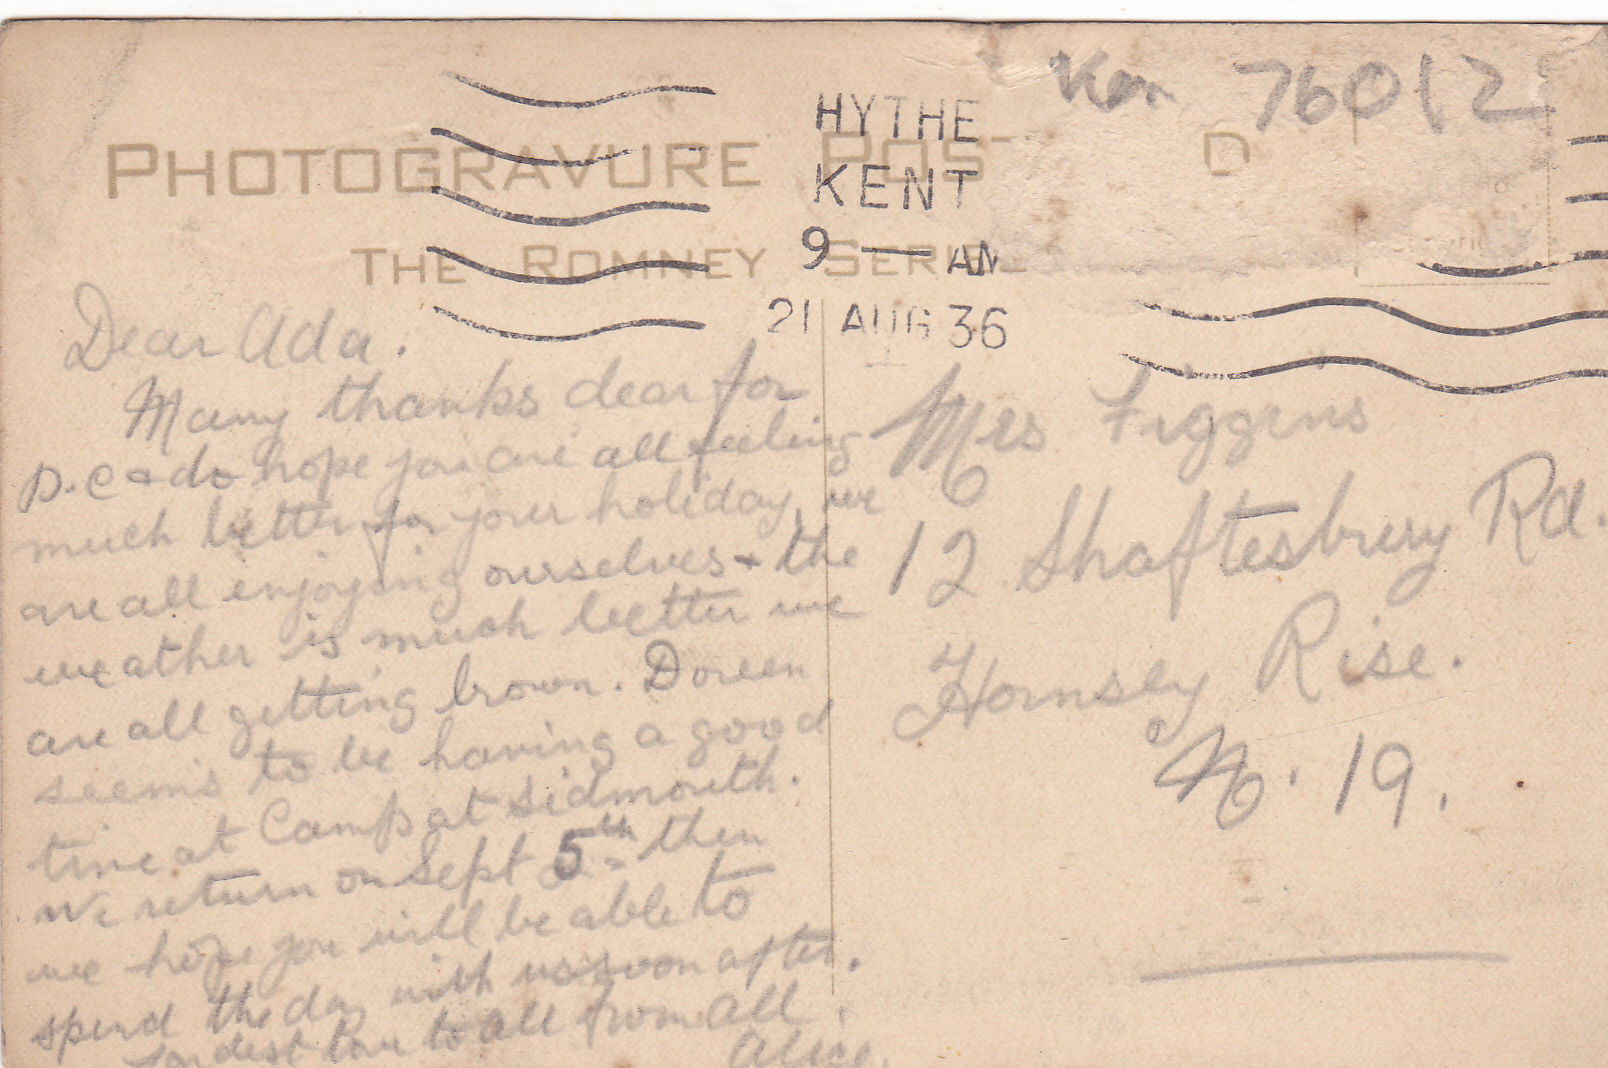 Ken 76012
HYTHE
KENT
9 — AM
21 AUG 36
PHOTOGRAVURE POST D
THE ROMNEY SERIE
Dear Ada.
Many thanks dear for
P.C & do hope you are all feeling
much better for your holiday, we
are all enjoying ourselves + the
weather is much better we
are all getting brown. Doreen
seems to be having a good
time at Camp at Sidmouth.
We return on Sept 5th then
we hope you will be able to
spend the day with us soon after.
fondest love to all from all.
Alice.
Mrs Figgins
12 Shaftesbury Rd.
Hornsey Rise.
No. 19.